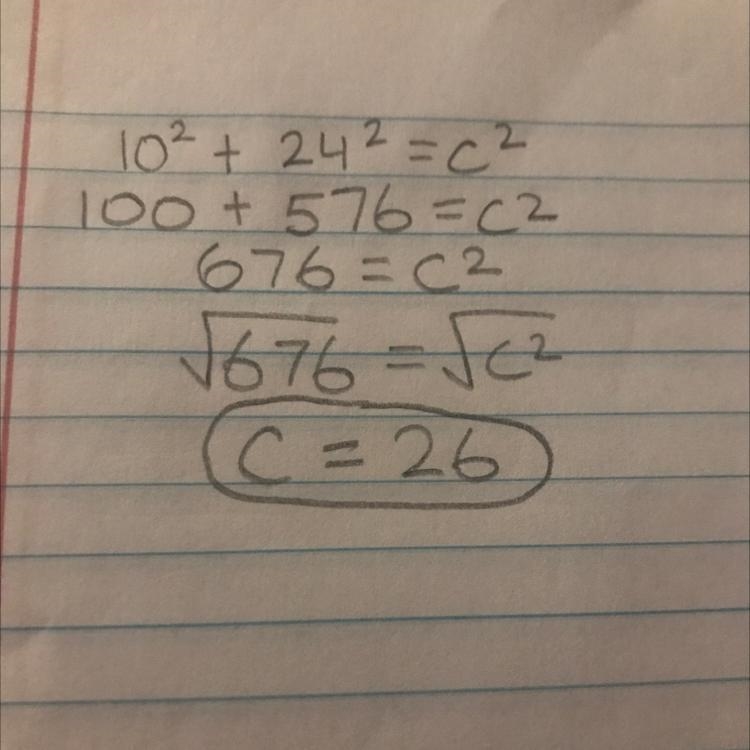 10² + 24² = c²
100 + 576 = c2
676 = c2
√676 = √c²
C = 26